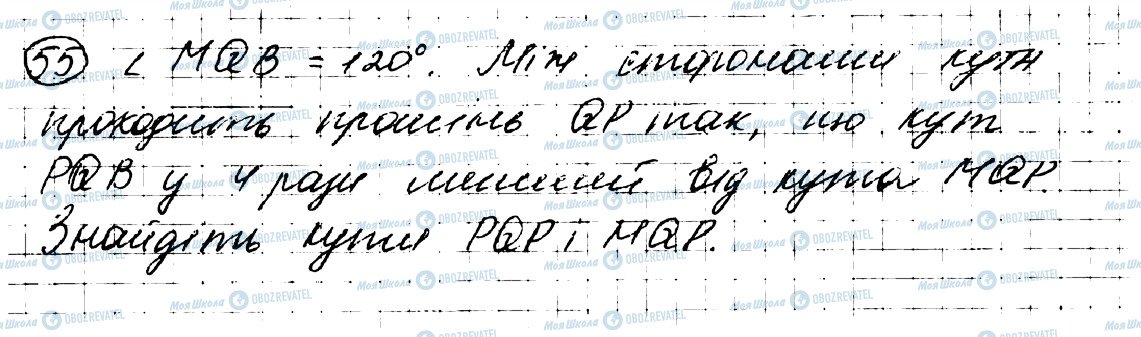 55 ∠ MQB = 120°. Між сторонами кута
проходить промінь QP так, що кут
PQB у 4 рази менший від кута MQP.
Знайдіть кути PQP і MQP.